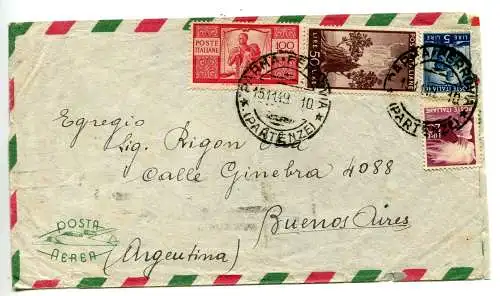 POSTE ITALIANE
100
LIRE 50 LIRE
POSTE ITALIANE
5
LIRE 5 LIRE
PARMA * FERROVIA
15.11.49. 10
*(PARTENZE)*
Egregio
Sig. Rigon
Calle Ginebra 4088
Buenos Aires
(Argentina)
POSTA
AEREA